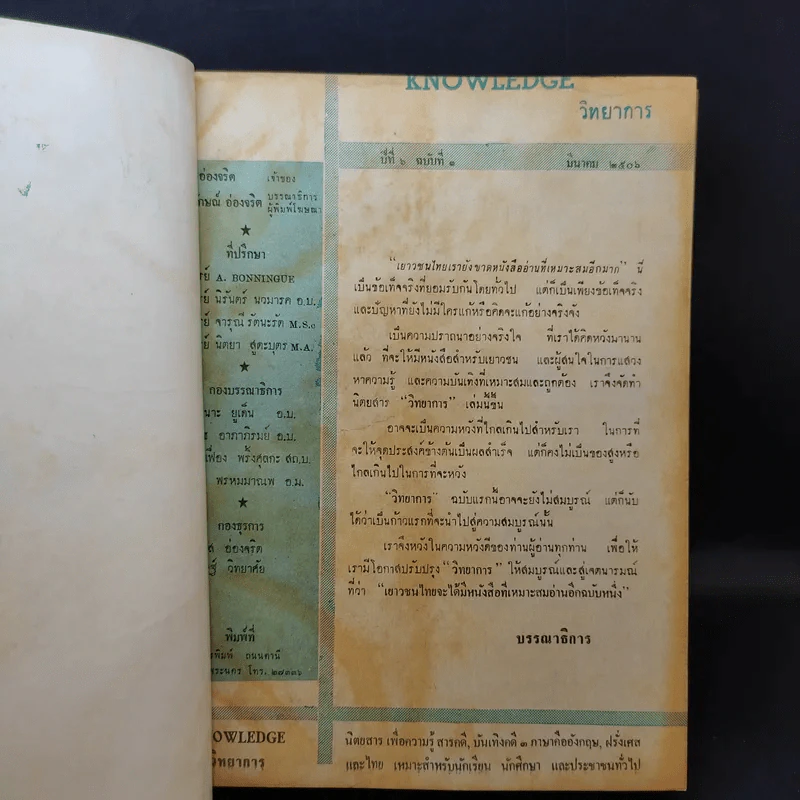 KNOWLEDGE
วิทยาการ
ปีที่ ๖ ฉบับที่ ๑ มีนาคม ๒๕๐๖
อ่องจริต เจ้าของ
อ่องจริต บรรณาธิการ
ผู้พิมพ์โฆษณา
ที่ปรึกษา
A. BONNINGUE
นิรันดร์ นวมารค อ.บ.
จารุณี รัตนะรัต M.Sc
นิตยา สูตะบุตร M.A.
กองบรรณาธิการ
ยูเด็น อ.บ.
อาภาภิรมย์ อ.บ.
พรหมมาณพ อ.ม.
กองธุรการ
อ่องจริต
วิทยาศัย
พิมพ์ที่
ถนนตานี
โทร. ๒๗๓๓๖
"เยาวชนไทยเรายังขาดหนังสืออ่านที่เหมาะสมอีกมาก" นี่
เป็นข้อเท็จจริงที่ยอมรับกันโดยทั่วไป แต่ก็เป็นเพียงข้อเท็จจริง
และปัญหาที่ยังไม่มีใครแก้หรือคิดจะแก้อย่างจริงจัง
เป็นความปราถนาอย่างจริงใจ ที่เราได้คิดหวังมานาน
แล้ว ที่จะให้มีหนังสือสำหรับเยาวชน และผู้สนใจในการแสวง
หาความรู้ และความบันเทิงที่เหมาะสมและถูกต้อง เราจึงจัดทำ
นิตยสาร "วิทยาการ" เล่มนี้ขึ้น
อาจจะเป็นความหวังที่ไกลเกินไปสำหรับเรา ในการที่
จะให้จุดประสงค์ข้างต้นเป็นผลสำเร็จ แต่ก็คงไม่เป็นของสูงหรือ
ไกลเกินไปในการที่จะหวัง
"วิทยาการ" ฉบับแรกนี้อาจจะยังไม่สมบูรณ์ แต่ก็นับ
ได้ว่าเป็นก้าวแรกที่จะนำไปสู่ความสมบูรณ์นั้น
เราจึงหวังในความหวังดีของท่านผู้อ่านทุกท่าน เพื่อให้
เรามีโอกาสปรับปรุง "วิทยาการ" ให้สมบูรณ์และสู่เจตนารมณ์
ที่ว่า "เยาวชนไทยจะได้มีหนังสือที่เหมาะสมอ่านอีกฉบับหนึ่ง"
บรรณาธิการ
OWLEDGE
วิทยาการ
นิตยสาร เพื่อความรู้ สารคดี, บันเทิงคดี ๓ ภาษาคืออังกฤษ, ฝรั่งเศส
และไทย เหมาะสำหรับนักเรียน นักศึกษา และประชาชนทั่วไป